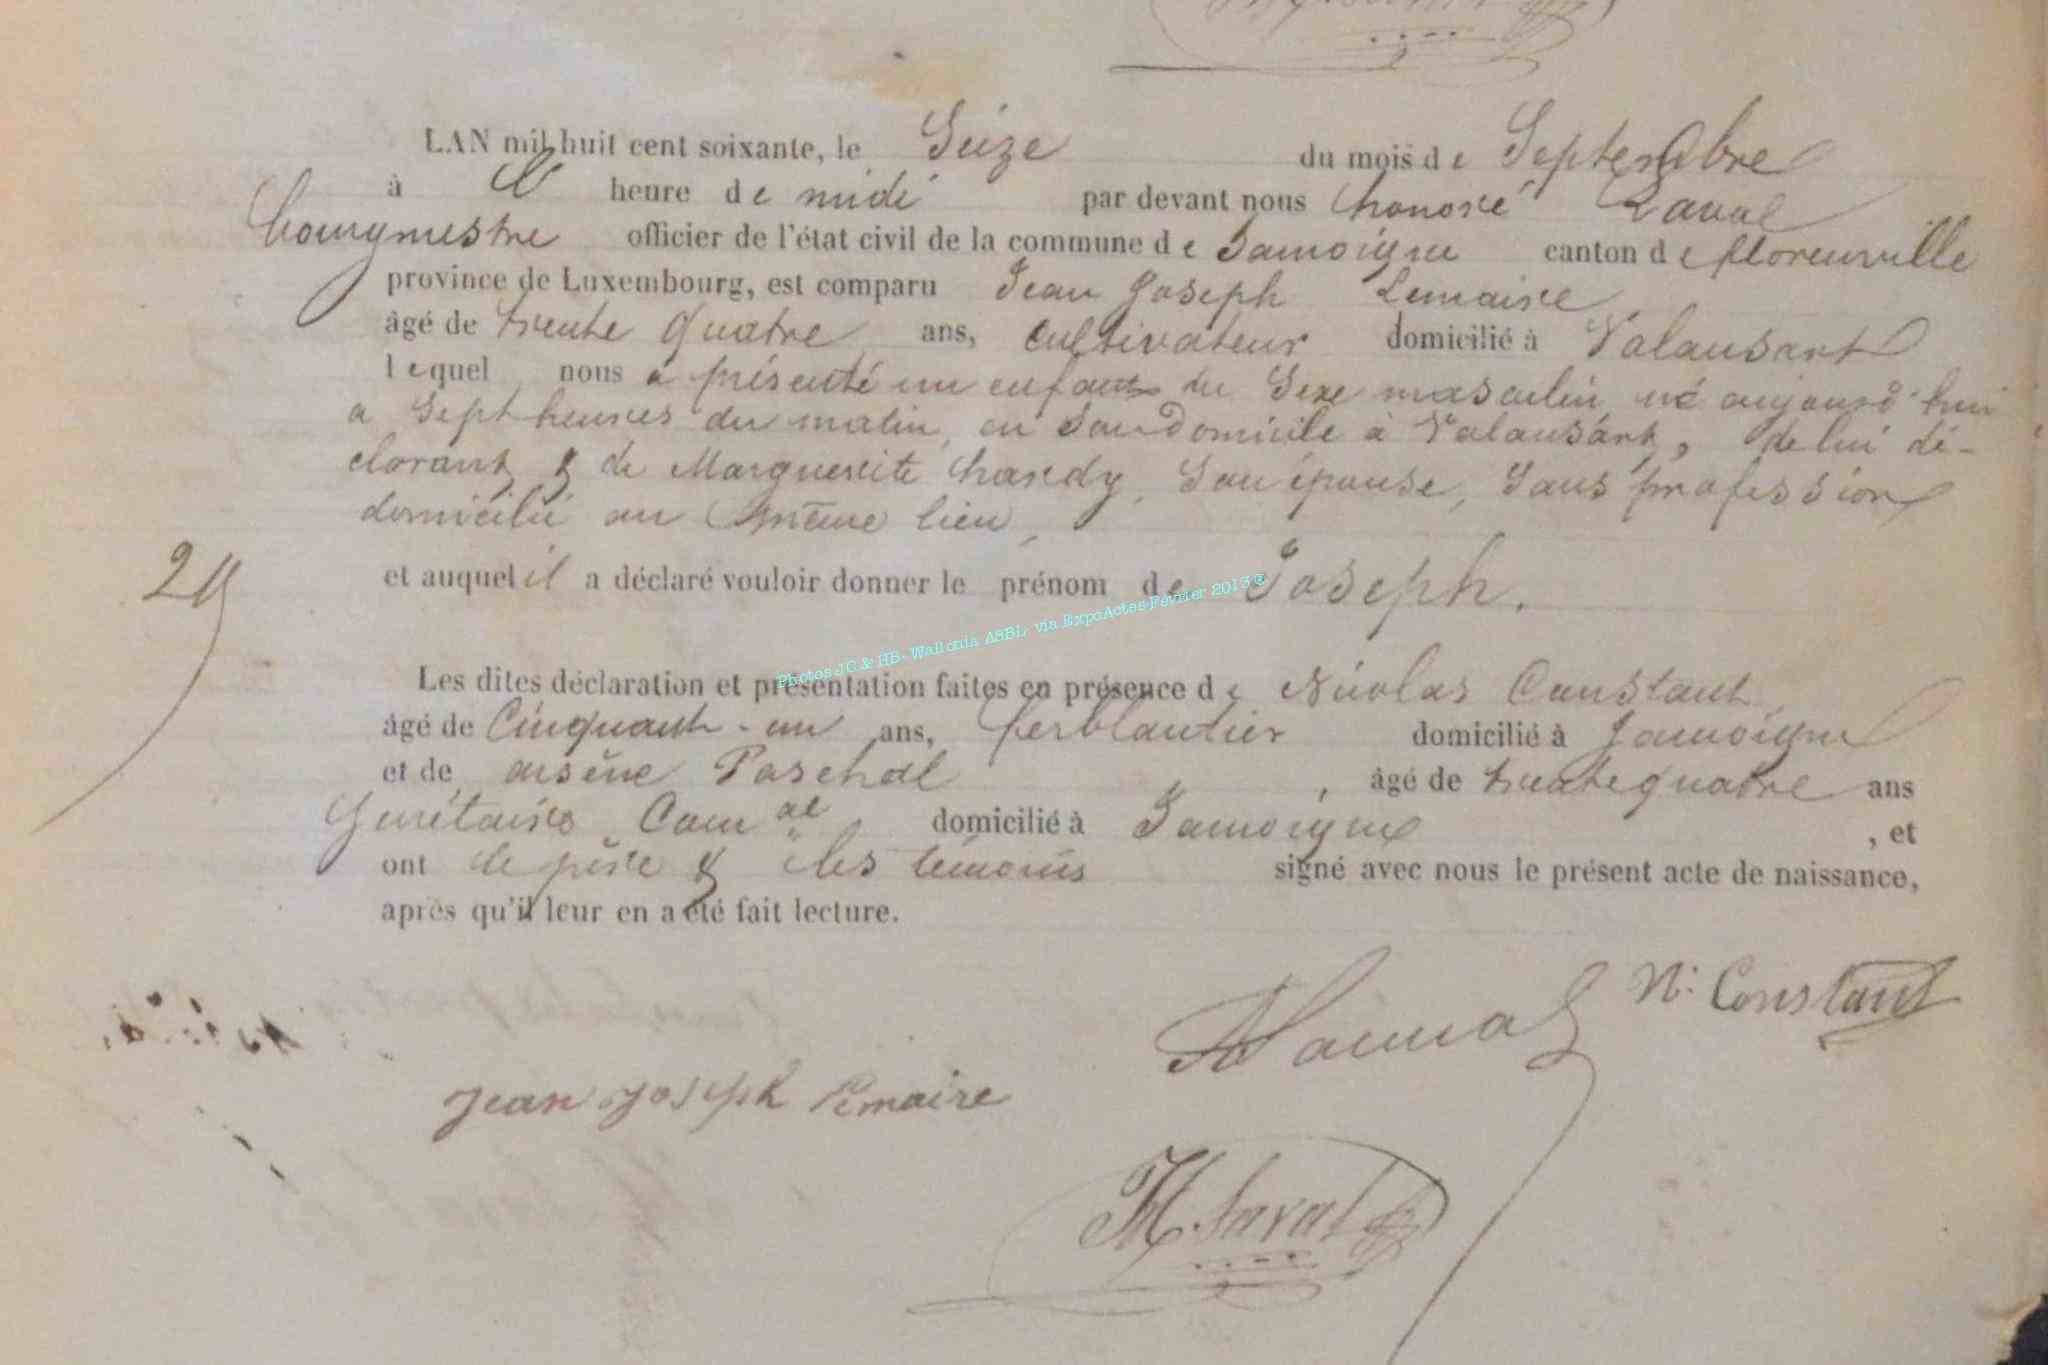 LAN mil huit cent soixante, le Seize du mois de Septembre
à l' heure de midi par devant nous honoré Laval
bourgmestre officier de l'état civil de la commune de Jamoigne canton de florenville
province de Luxembourg, est comparu Jean Joseph Lemaire
âgé de trente quatre ans, cultivateur domicilié à Valansart
lequel nous a présenté un enfant du Sexe masculin né aujourd'hui
a Sept heures du matin, en Son Domicile à Valansart, de lui dé-
clarant & de Marguerite hardy, Son épouse, Sans profession
domicilié au même lieu,
29
et auquel il a déclaré vouloir donner le prénom de Joseph.
Photos JC & HB- Wallonia ASBL via ExpoActes Février 2013 ©
Les dites déclaration et présentation faites en présence de Nicolas Constant
âgé de Cinquante-un ans, ferblantier domicilié à Jamoigne
et de arsène Paschal, âgé de trente quatre ans
Secrétaire Com al domicilié à Jamoigne, et
ont le père & les témoins signé avec nous le présent acte de naissance,
après qu'il leur en a été fait lecture.
N: Constant
Jean joseph lemaire
H. Laval